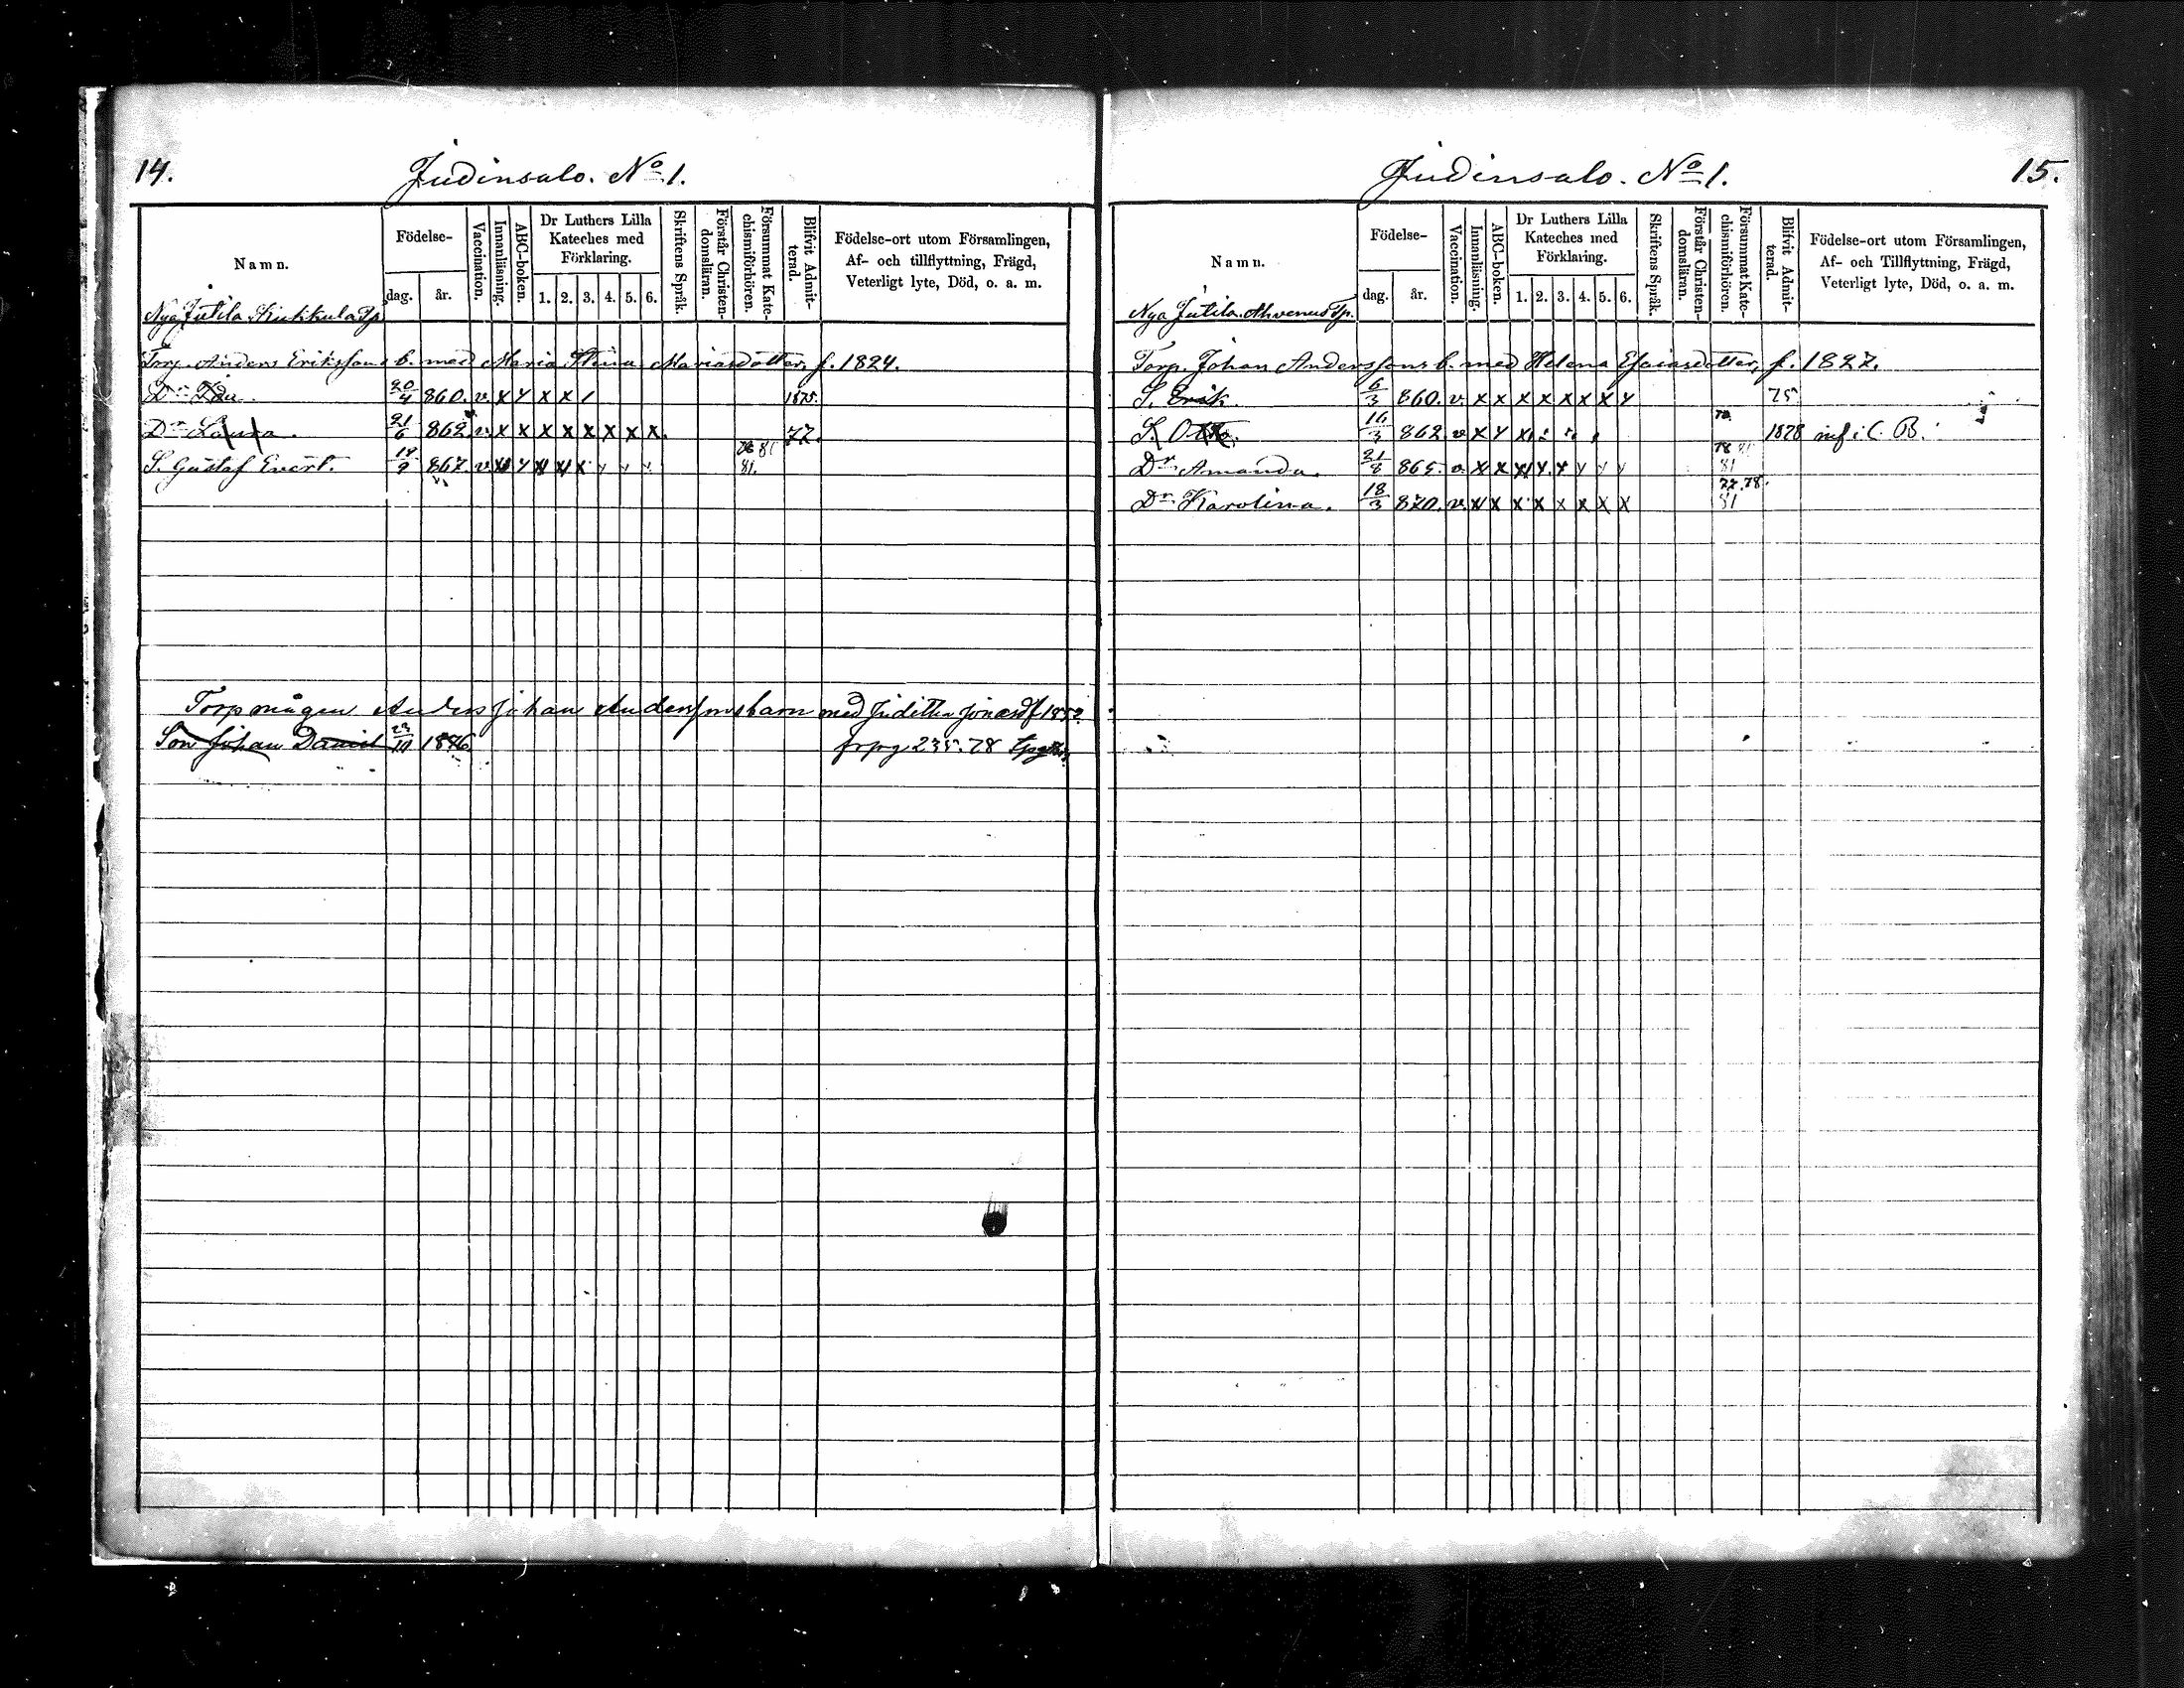 14.
Judinsalo. No 1.
Namn.
Födelse-
dag.
år.
Vaccination.
Innanläsning.
ABC-boken.
Dr Luthers Lilla Kateches med Förklaring.
1. 2. 3. 4. 5. 6.
Skriftens Språk.
Förstår Christen-domsläran.
Försummat Kate-chismiförhören.
Blifvit Admit-terad.
Födelse-ort utom Församlingen,
Af- och tillflyttning, Frägd,
Veterligt lyte, Död, o. a. m.
Nya Jutila Tp
Torp. Anders Erikssons b. med Maria Stina Mariasdotter, f. 1824.
Dr. 20/4 860. v. x y x x / 1875.
Dr Laura. 21/6 862. v. x x x x x x x x. 77.
S. Gustaf Evert. 18/9 867. v x y x x x y y y 78 81 81.
Torpmågen Anders Johan Anderssons barn med Juditha Jonasdf 1852.
Son Johan Daniel 23/10 1876 frpg 235. 78
15.
Judinsalo. No 1.
Namn.
Födelse-
dag.
år.
Vaccination.
Innanläsning.
ABC-boken.
Dr Luthers Lilla Kateches med Förklaring.
1. 2. 3. 4. 5. 6.
Skriftens Språk.
Förstår Christen-domsläran.
Försummat Kate-chismiförhören.
Blifvit Admit-terad.
Födelse-ort utom Församlingen,
Af- och Tillflyttning, Frägd,
Veterligt lyte, Död, o. a. m.
Nya Jutila. Ahvenus Tp.
Torp. Johan Anderssons b. med Helena Esaiasdotter, f. 1827.
S. Erik 6/3 860. v. x x x x x x x y 75
S. Otto. 16/3 862. v. x y x 1878 inf i C. B.
Dr. Amanda. 21/8 865. v. x x x y. y y y y 78 81 81
Dr. Karolina. 18/3 870. v. x x x x x x x x 77. 78. 81